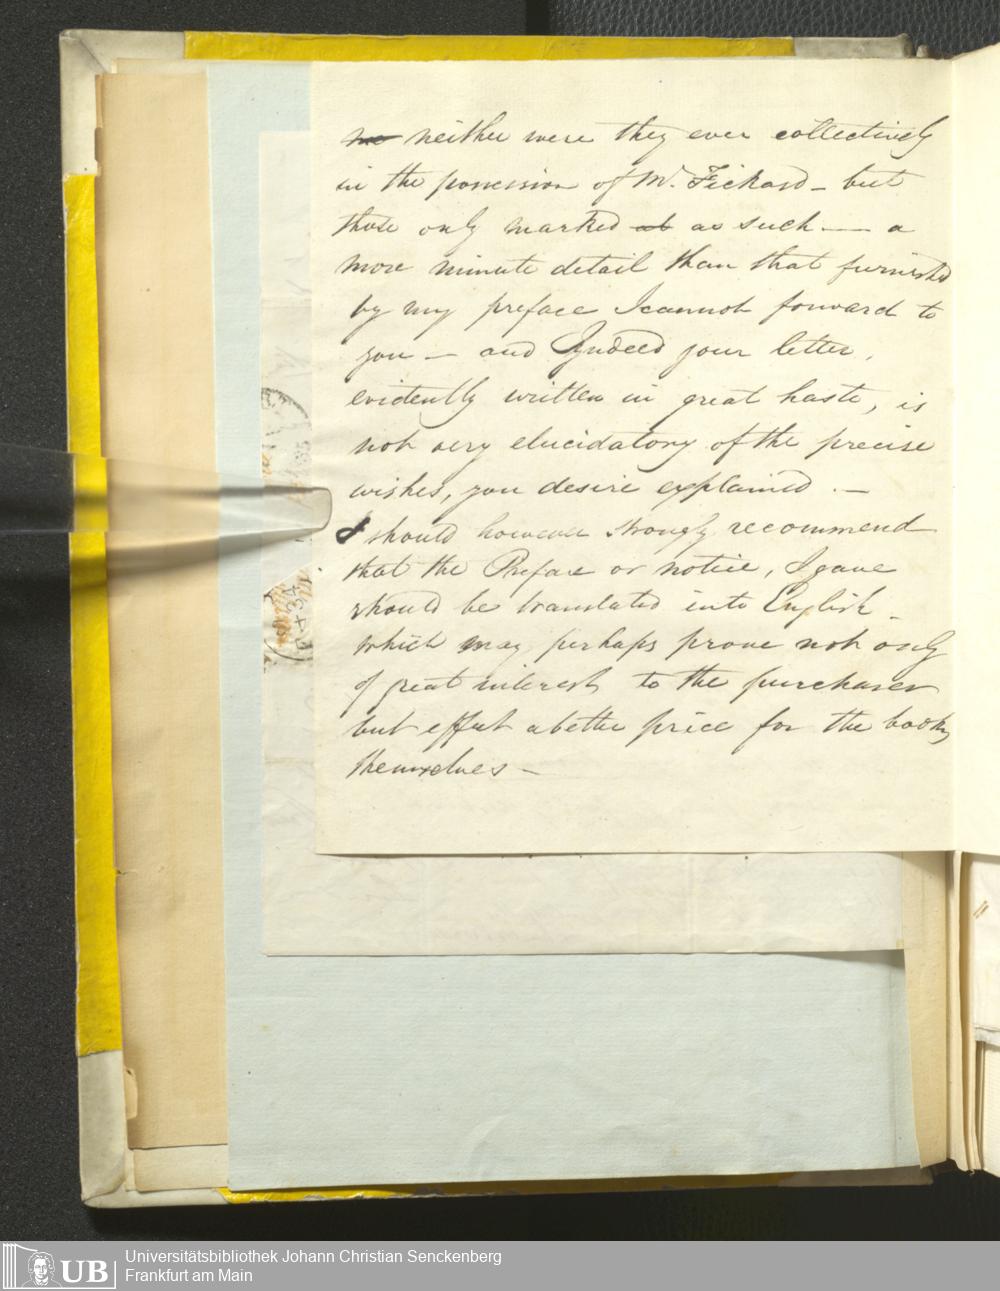 neither were they ever collectively
in the possession of Mr. Fickard - but
those only marked as such — a
more minute detail than that furnished
by my preface I cannot forward to
you — and Indeed your letter,
evidently written in great haste, is
not very elucidatory of the precise
wishes, you desire explained. —
I should however strongly recommend
that the Preface or notice, I gave
should be translated into English
which may perhaps prove not only
of great interest to the purchaser
but effect a better price for the books
themselves —
UB
Universitätsbibliothek Johann Christian Senckenberg
Frankfurt am Main